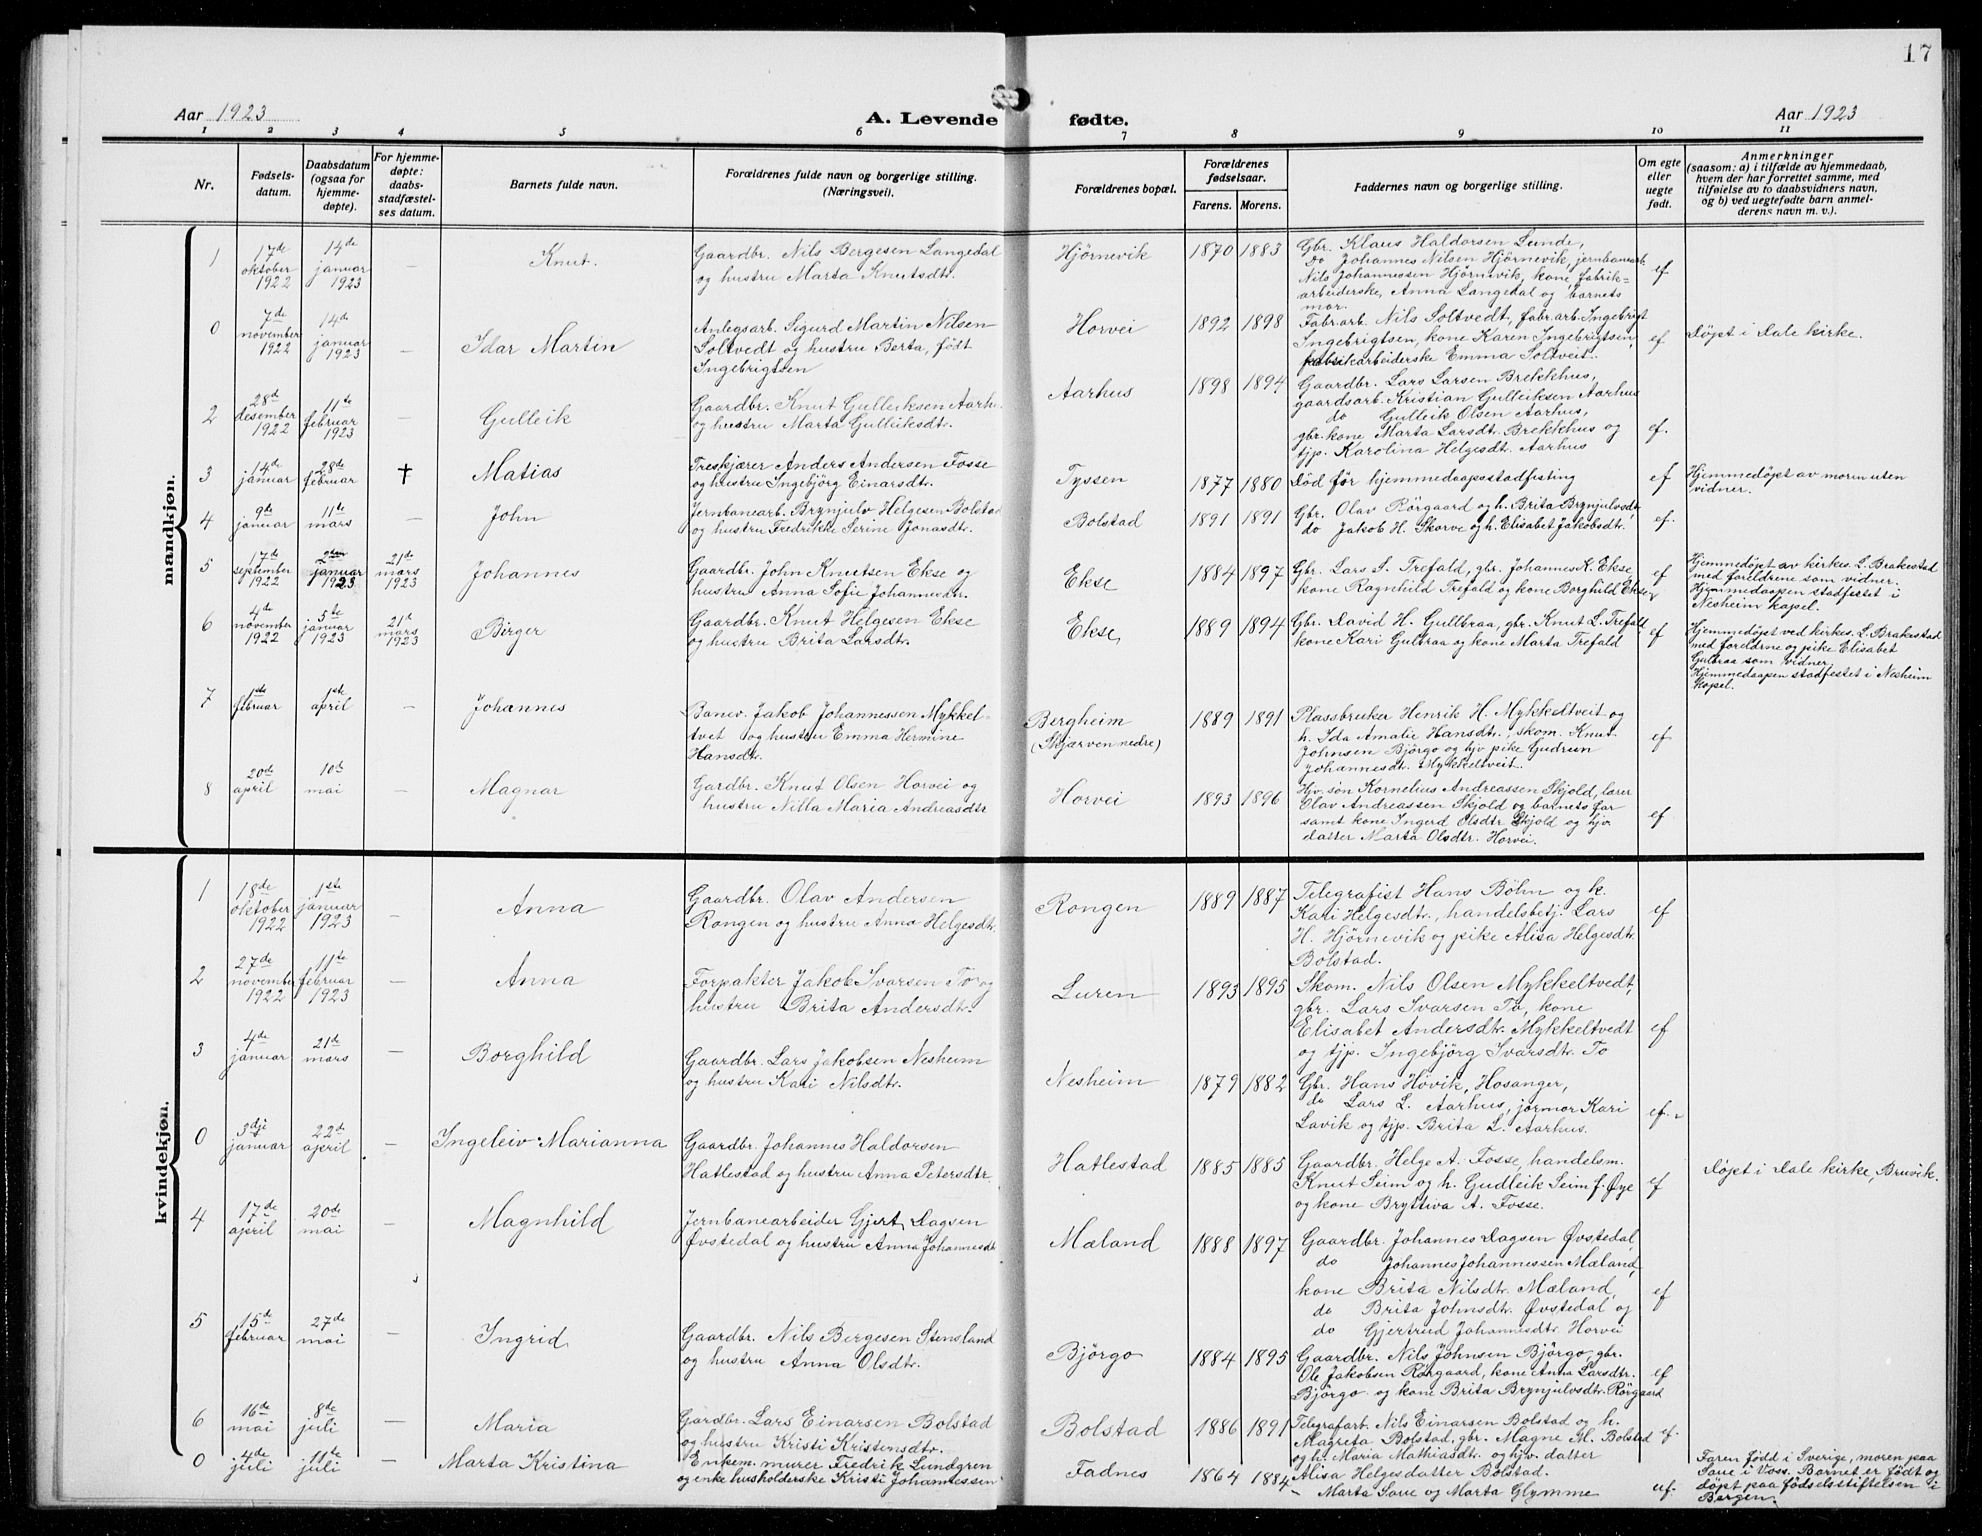 17
Aar 1923
A. Levende fødte.
Aar 1923
1 2 3 4 5 6 7 8 9 10 11
Nr.
Fødsels-
datum.
Daabsdatum
(ogsaa for
hjemme-
døpte).
For hjemme-
døpte:
daabs-
stadfæstel-
ses datum.
Barnets fulde navn.
Forældrenes fulde navn og borgerlige stilling.
(Næringsvei).
Forældrenes bopæl.
Forældrenes
fødselsaar.
Farens. Morens.
Faddernes navn og borgerlige stilling.
Om egte
eller
uegte
født.
Anmerkninger
(saasom: a) i tilfælde av hjemmedaab,
hvem der har forrettet samme, med
tilføielse av to daabsvidners navn,
og b) ved uegtefødte barn anmel-
derens navn m. v.).
mandkjøn.
1
17de
oktober
1922
14de
januar
1923
—
Knut.
Gaardbr. Nils Bergesen Langedal
og hustru Marta Knutsdtr.
Hjörnevik
1870 1883
Gbr. Klaus Haldorsen Lunde,
Do Johannes Nilsen Hjörnevik, jernbanearb.
Nils Johannessen Hjörnevik, kone, fabrik-
arbeiderske, Anna Langedal og barnets
mor.
ef
0
7de
november
1922
14de
januar
1923
—
Idar Martin
Anlegsarb. Sigurd Martin Nilsen
Soltvedt og hustru Berta, född
Ingebrigtsen
Horvei
1892 1898
Fabr.arb. Nils Soltvedt, fabr.arb. Ingebrigt
Ingebrigtsen, kone Karen Ingebrigtsen,
fabrikarbeiderske Emma Soltveit.
ef
Döpt i Dale kirke.
2
28de
desember
1922
11te
februar
1923
—
Gulleik
Gaardbr. Knut Gulleiksen Aarhus
og hustru Marta Gulleiksdtr.
Aarhus
1898 1894
Gaardbr. Lars Larsen Brekkhus,
gaardsarb. Kristian Gulleiksen Aarhus
do Gulleik Olsen Aarhus,
gbr.kone Marta Larsdtr. Brekkhus og
tjp. Karolina Helgesdtr. Aarhus
ef.
3
14de
januar
28de
februar
†
Matias
Treskjærer Anders Andersen Fosse
og hustru Ingebjörg Einarsdtr.
Tyssen
1877 1880
Död för hjemmedaapsstadfesting
ef
Hjemmedöpt av moren uten
vidner.
4
9de
januar
11te
mars
—
John
Jernbanearb. Brynjulv Helgesen Bolstad
og hustru Fredrikke Serine Jonasdtr.
Bolstad
1891 1891
Gbr. Olav Rörgaard og h. Brita Brynjulvsdtr.
do Jakob H. Skorve og h. Elisabet Jakobsdtr.
ef.
5
17de
september
1922
januar
1923
21de
mars
1923
Johannes
Gaardbr. John Knutsen Ekse og
hustru Anna Sofie Johannesdtr.
Ekse
1884 1897
Gbr. Lars S. Trefald, gbr. Johannes K. Ekse,
kone Ragnhild Trefald og kone Borghild Ekse
ef
Hjemmedöpt av kirkes. L. Brakestad
med foreldrene som vidner.
Hjemmedaapen stadfestet i
Nesheim kapel.
6
4de
november
1922
5te
januar
1923
21de
mars
1923
Birger
Gaardbr. Knut Helgesen Ekse
og hustru Brita Larsdtr.
Ekse
1889 1894
Gbr. David H. Gullbraa, gbr. Knut L. Trefald
kone Kari Gulbraa og kone Marta Trefald
ef
Hjemmedöpt ved kirkes. L. Brakestad
med foreldrne og pike Elisabet
Gulbraa som vidner.
Hjemmedaapen stadfestet i Nesheim
kapel.
7
1ste
februar
1ste
april
—
Johannes
Banev. Jakob Johannessen Mykkel-
tvet og hustru Emma Hermine
Hansdtr.
Bergheim
(Skjærven nedre)
1889 1891
Plassbruker Henrik H. Mykkeltveit og
h. Ida Amalie Hansdtr., skom. Knut
Johnsen Björgo og hjv pike Gudrun
Johannesdtr. Mykkeltveit.
ef
8
20de
april
10de
mai
—
Magnar
Gardbr. Knut Olsen Horvei og
hustru Nilla Maria Andreasdtr
Horvei
1893 1896
Hjv. sön Kornelius Andreassen Skjold, lærer
Olav Andreassen Skjold og barnets far
samt kone Ingerd Olsdtr. Skjold og hjv.
datter Marta Olsdtr. Horvei.
ef
kvindekjøn.
1
18de
oktober
1922
1ste
januar
1923
—
Anna
Gaardbr. Olav Andersen
Rongen og hustru Anna Helgesdtr.
Rongen
1889 1887
Telegrafist Hans Böhn og k.
Kari Helgesdtr., handelsbetj. Lars
H. Hjörnevik og pike Alisa Helgesdtr.
Bolstad.
ef
2
27de
november
1922
11te
februar
1923
—
Anna
Forpakter Jakob Ivarsen To og
hustru Brita Andersdtr.
Luren
1893 1895
Skom. Nils Olsen Mykkeltvedt,
gbr. Lars Ivarsen To, kone
Elisabet Andersdtr. Mykkeltvedt
og tjp. Ingebjörg Ivarsdtr. To
ef
3
4de
januar
21de
mars
—
Borghild
Gaardbr. Lars Jakobsen Nesheim
og hustru Kari Nilsdtr.
Nesheim
1879 1882
Gbr. Hans Hövik, Hosanger,
do Lars L. Aarhus, jormor Kari
Lavik og tjp. Brita L. Aarhus.
ef.
0
3dje
januar
22de
april
—
Ingeleiv Marianna
Gaardbr. Johannes Haldorsen
Hatlestad og hustru Anna Petersdtr
Hatlestad
1885 1885
Gaardbr. Helge A. Fosse, handelsm.
Knut Seim og h. Gudleik Seim f. Øye
og kone Bryttiva A. Fosse.
ef
Döpt i Dale kirke, Bruvik.
4
17de
april
20de
mai
—
Magnhild
Jernbanearbeider Gjert Dagsen
Øvstedal og hustru Anna Johannesdtr
Mæland
1888 1897
Gaardbr. Johannes Dagsen Øvstedal,
do Johannes Johannessen Mæland,
kone Brita Nilsdtr. Mæland,
do Brita Johnsdtr. Øvstedal og
do Gjertrud Johannesdtr. Horvei
ef
5
15de
februar
27de
mai
—
Ingrid
Gaardbr. Nils Bergesen Stensland
og hustru Anna Olsdtr.
Björgo
1884 1895
Gaardbr. Nils Johnsen Björgo, gbr.
Ole Jakobsen Rörgaard, kone Anna Larsdtr.
Björgo og kone Brita Brynjulvsdtr. Rörgaard
ef
6
16de
mai
8de
juli
—
Maria
Gardbr. Lars Einarsen Bolstad
og hustru Kristi Kristensdtr.
Bolstad
1886 1891
Telegrafarb. Nils Einarsen Bolstad og h.
Magreta Bolstad, gbr. Magne M. Bolstad
og h. Maria Mathiasdtr. og hjv. datter
Alisa Helgesdatter Bolstad.
ef.
0
4de
juli
11te
juli
—
Marta Kristina
Enkem. murer Fredrik Lundgren
og enke husholderske Kristi Johannessen
Fadnes
1864 1884
Marta Saue og Marta Glymme
uf.
Faren född i Sverige, moren paa
Saue i Voss. Barnet er födt og
döpt paa födselsstiftelsen i
Bergen.